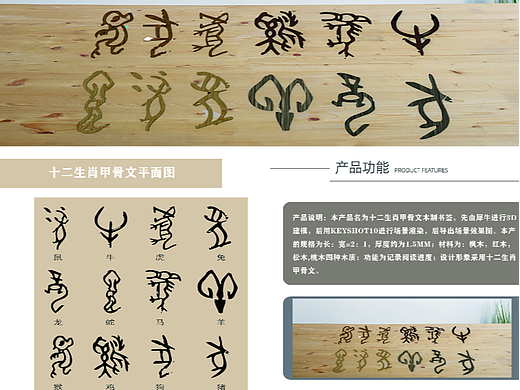 十二生肖甲骨文平面图
产品功能 PRODUCT FEATURES
鼠 牛 虎 兔
龙 蛇 马 羊
猴 鸡 狗 猪
产品说明：本产品名为十二生肖甲骨文木制书签，先由犀牛进行3D
建模，后用KEYSHOT10进行场景渲染，后导出场景效果图。本产
的规格为长：宽=2：1，厚度约为1.5MM；材料为：枫木，红木，
松木,桃木四种木质；功能为记录阅读进度；设计形象采用十二生肖
甲骨文。